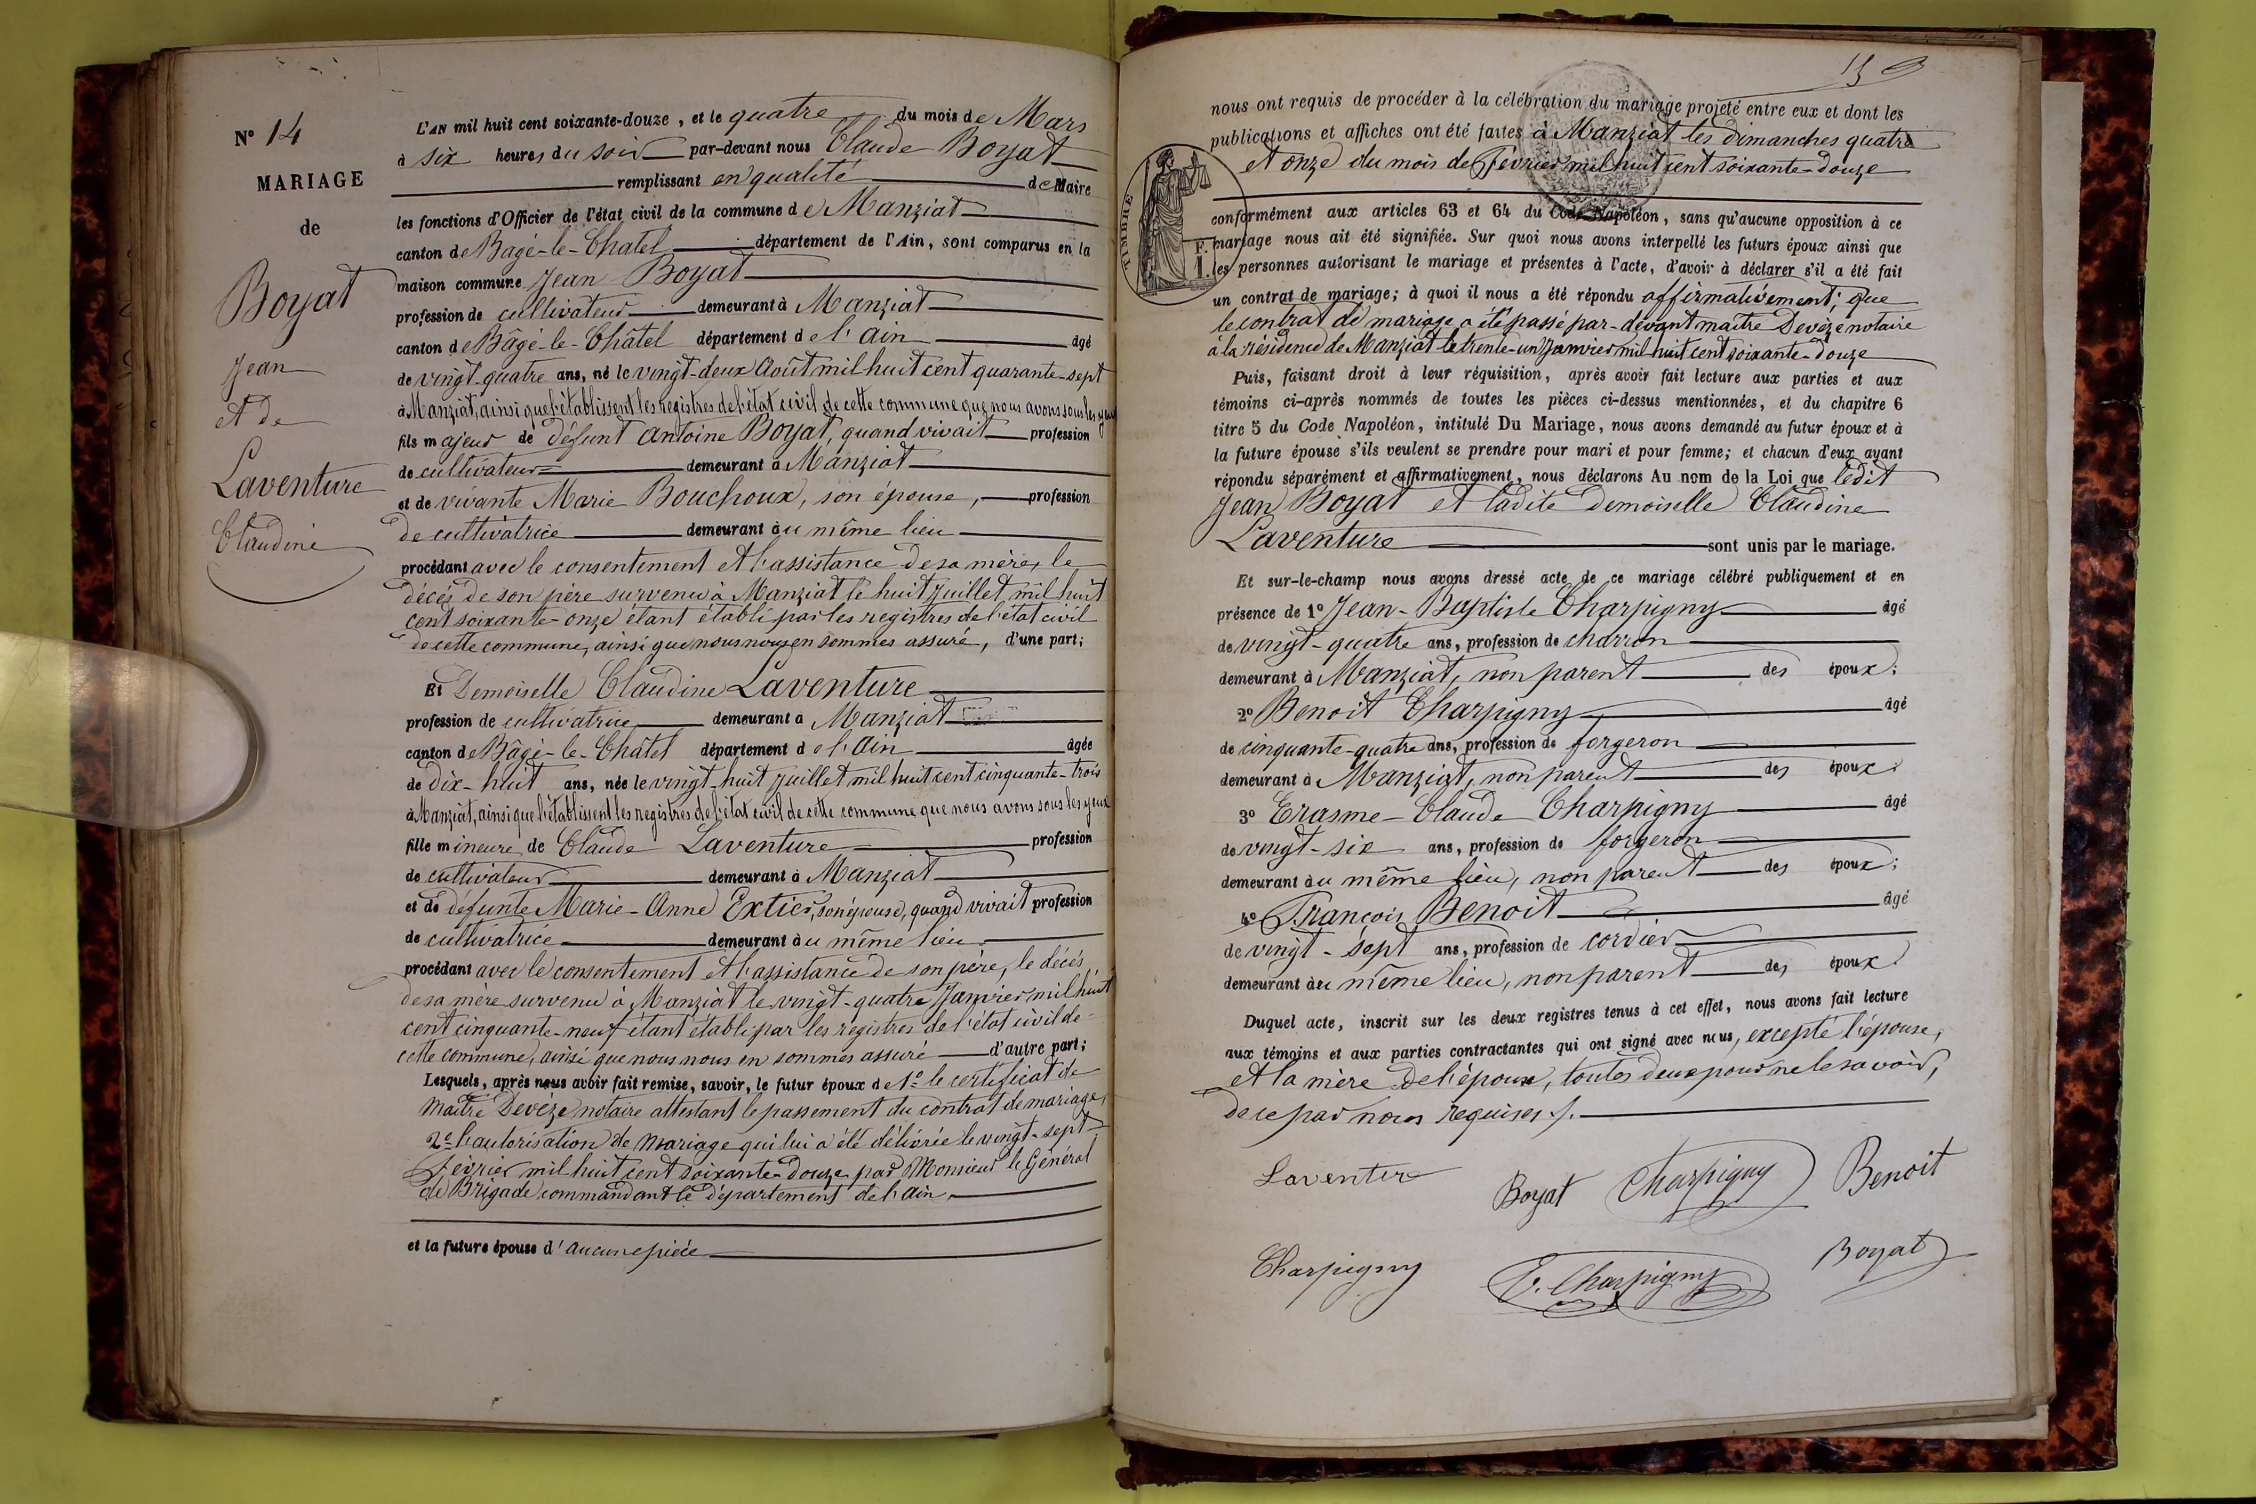 N° 14
MARIAGE
de
Boyat
Jean
et de
Laventure
Claudine
L'AN mil huit cent soixante-douze, et le quatre du mois de Mars
à six heures du soir par-devant nous Claude Boyat
remplissant en qualité de Maire
les fonctions d'Officier de l'état civil de la commune de Manziat
canton de Bagé-le-Chatel département de l'Ain, sont comparus en la
maison commune Jean Boyat
profession de cultivateur demeurant à Manziat
canton de Bâgé-le-Châtel département de l'Ain âgé
de vingt-quatre ans, né le vingt-deux Août mil huit cent quarante-sept
à Manziat, ainsi que l'établissent les registres de l'état civil de cette commune que nous avons sous les yeux
fils majeur de défunt Antoine Boyat, quand vivait profession
de cultivateur demeurant à Manziat
et de vivante Marie Bouchoux, son épouse, profession
de cultivatrice demeurant au même lieu
procédant avec le consentement et l'assistance de sa mère, le
décès de son père survenu à Manziat le huit Juillet mil huit
cent soixante-onze étant établi par les registres de l'état civil
de cette commune, ainsi que nous nous en sommes assuré, d'une part;
Et Demoiselle Claudine Laventure
profession de cultivatrice demeurant à Manziat
canton de Bâgé-le-Châtel département de l'Ain âgée
de dix-huit ans, née le vingt-huit Juillet mil huit cent cinquante-trois
à Manziat, ainsi que l'établissent les registres de l'état civil de cette commune que nous avons sous les yeux
fille mineure de Claude Laventure profession
de cultivateur demeurant à Manziat
et de défunte Marie-Anne Extier, son épouse, quand vivait profession
de cultivatrice demeurant au même lieu
procédant avec le consentement et l'assistance de son père, le décès
de sa mère survenu à Manziat le vingt-quatre Janvier mil huit
cent cinquante-neuf étant établi par les registres de l'état civil de
cette commune, ainsi que nous nous en sommes assuré d'autre part;
Lesquels, après nous avoir fait remise, savoir, le futur époux de 1° le certificat de
Maître Devèze notaire attestant le passement du contrat de mariage,
2° l'autorisation de mariage qui lui a été délivrée le vingt-sept
Février mil huit cent soixante-douze par Monsieur le Général
de Brigade commandant le département de l'Ain
et la future épouse d'aucune pièce
nous ont requis de procéder à la célébration du mariage projeté entre eux et dont les
publications et affiches ont été faites à Manziat les dimanches quatre
et onze du mois de Février mil huit cent soixante-douze
TIMBRE
conformément aux articles 63 et 64 du Code Napoléon, sans qu'aucune opposition à ce
mariage nous ait été signifiée. Sur quoi nous avons interpellé les futurs époux ainsi que
les personnes autorisant le mariage et présentes à l'acte, d'avoir à déclarer s'il a été fait
un contrat de mariage; à quoi il nous a été répondu affirmativement; que
le contrat de mariage a été passé par-devant maître Devèze notaire
à la résidence de Manziat le trente-un Janvier mil huit cent soixante-douze
Puis, faisant droit à leur réquisition, après avoir fait lecture aux parties et aux
témoins ci-après nommés de toutes les pièces ci-dessus mentionnées, et du chapitre 6
titre 5 du Code Napoléon, intitulé Du Mariage, nous avons demandé au futur époux et à
la future épouse s'ils veulent se prendre pour mari et pour femme; et chacun d'eux ayant
répondu séparément et affirmativement, nous déclarons Au nom de la Loi que ledit
Jean Boyat et ladite Demoiselle Claudine
Laventure sont unis par le mariage.
Et sur-le-champ nous avons dressé acte de ce mariage célébré publiquement et en
présence de 1° Jean-Baptiste Charpigny âgé
de vingt-quatre ans, profession de charron
demeurant à Manziat, non parent des époux;
2° Benoit Charpigny âgé
de cinquante-quatre ans, profession de forgeron
demeurant à Manziat, non parent des époux;
3° Erasme-Claude Charpigny âgé
de vingt-six ans, profession de forgeron
demeurant au même lieu, non parent des époux;
4° François Benoit âgé
de vingt-sept ans, profession de cordier
demeurant au même lieu, non parent des époux
Duquel acte, inscrit sur les deux registres tenus à cet effet, nous avons fait lecture
aux témoins et aux parties contractantes qui ont signé avec nous, excepté l'épouse,
et la mère de l'époux, toutes deux pour ne le savoir,
de ce par nous requises ./.
Laventur Boyat Charpigny Benoit
Charpigny E. Charpigny Boyat